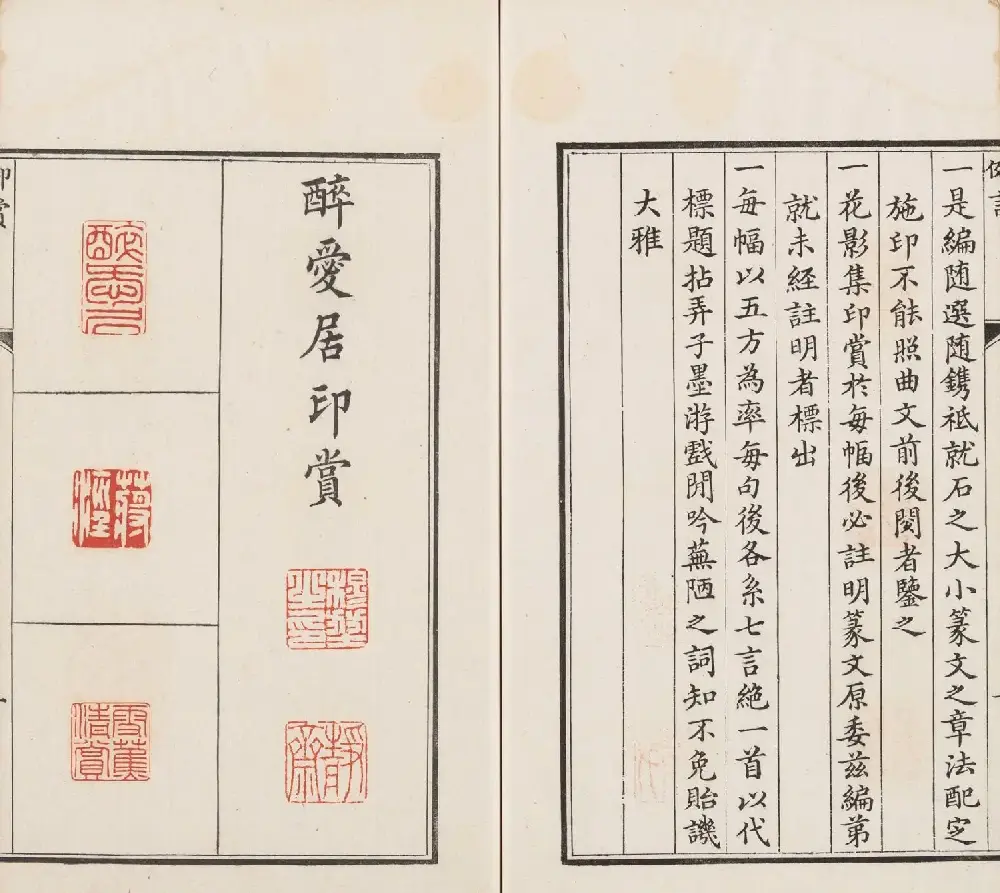 一是編随選随鐫祗就石之大小篆文之章法配定
施印不能照曲文前後閱者鑒之
一花影集印賞於每幅後必註明篆文原委茲編第
就未經註明者標出
一每幅以五方為率每句後各系七言絶一首以代
標題拈弄子墨游戲閒吟蕪陋之詞知不免貽譏
大雅
醉愛居印賞
靜齋
醉愛居
清賞
印賞